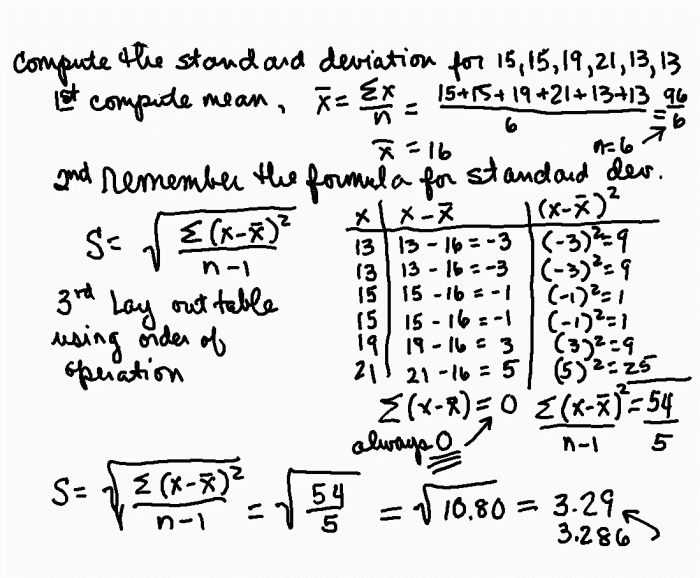 Compute the standard deviation for 15, 15, 19, 21, 13, 13
1st compute mean, x̄ = Σx/n = 15+15+19+21+13+13/6 = 96/6
n=6
x̄ = 16
2nd Remember the formula for standard dev.
S = √Σ(x-x̄)²/n-1
3rd Lay out table
using order of
operation
x | x-x̄ | (x-x̄)²
13 | 13-16 = -3 | (-3)² = 9
13 | 13-16 = -3 | (-3)² = 9
15 | 15-16 = -1 | (-1)² = 1
15 | 15-16 = -1 | (-1)² = 1
19 | 19-16 = 3 | (3)² = 9
21 | 21-16 = 5 | (5)² = 25
Σ(x-x̄) = 0 Σ(x-x̄)²/n-1 = 54/5
always 0
S = √Σ(x-x̄)²/n-1 = √54/5 = √10.80 = 3.29
3.286